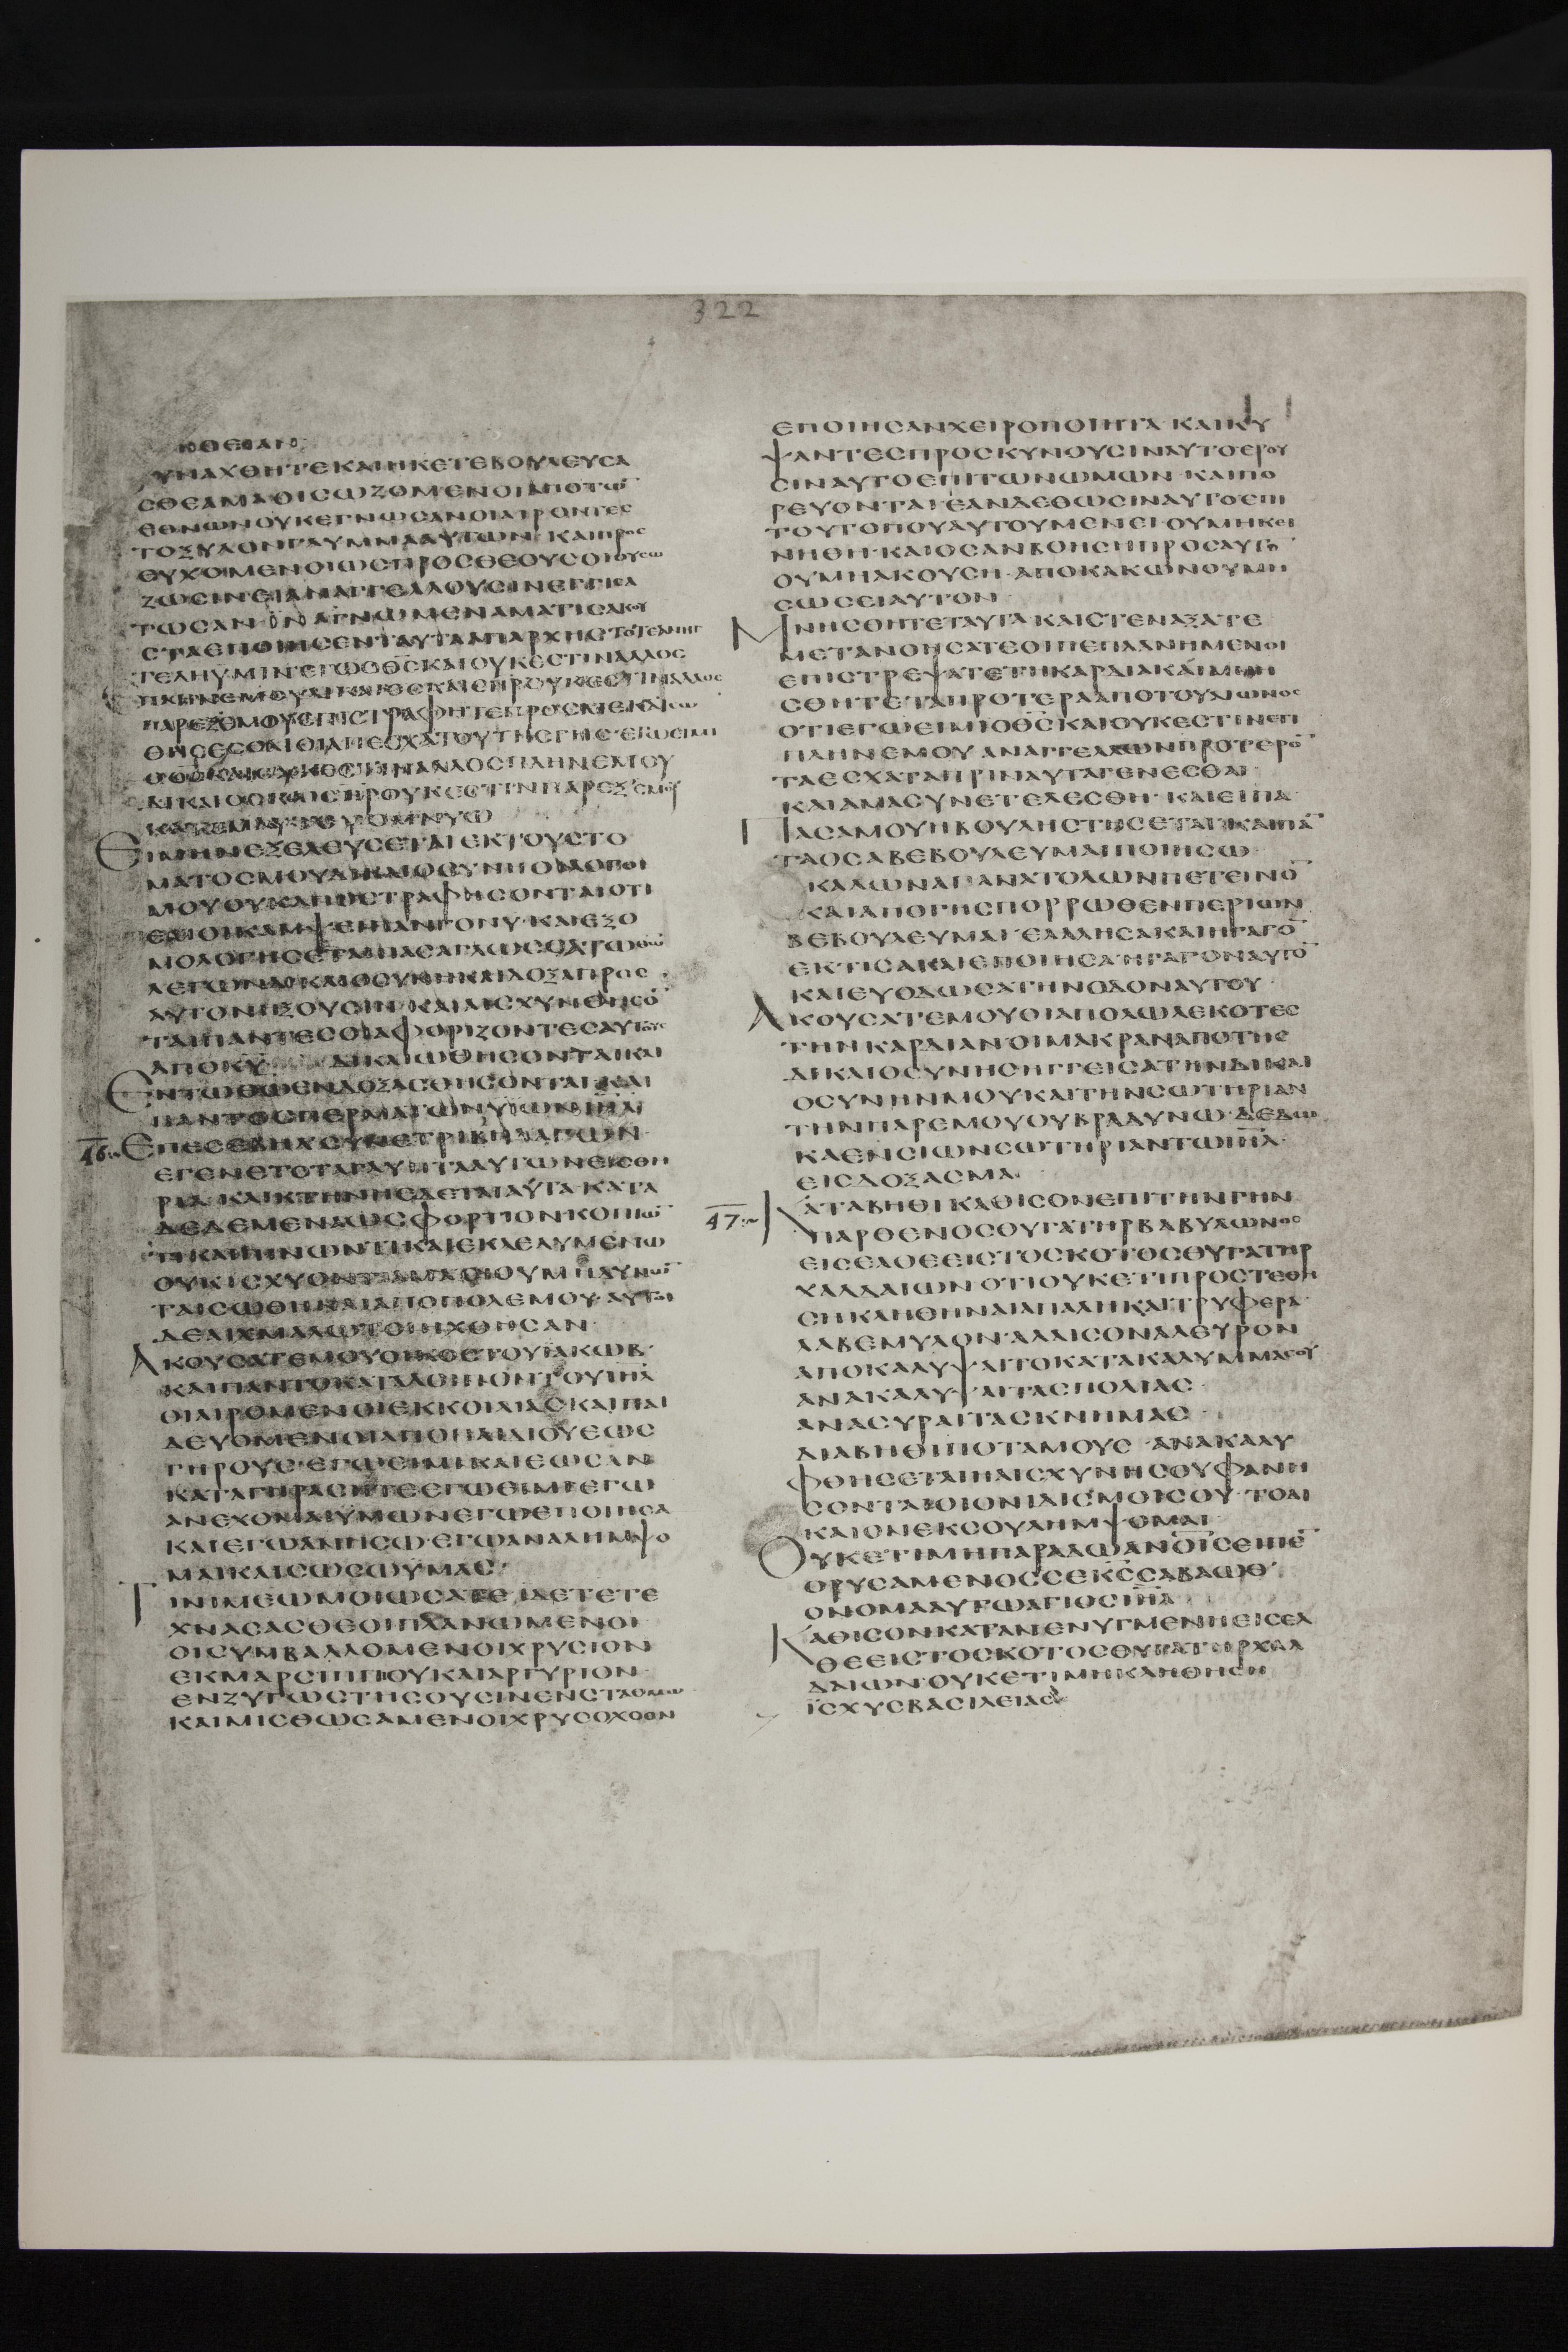 322
ΣΥΝΑΧΘΗΤΕΚΑΙΗΚΕΤΕΒΟΥΛΕΥΣΑ
ΣΘΕΑΜΑΟΙΣΩΖΟΜΕΝΟΙΑΠΟΤΩ̅
ΕΘΝΩΝΟΥΚΕΓΝΩΣΑΝΟΙΑΙΡΟΝΤΕΣ
ΤΟΞΥΛΟΝΓΛΥΜΜΑΑΥΤΩΝ·ΚΑΙΠΡΟΣ
ΕΥΧΟΜΕΝΟΙΩΣΠΡΟΣΘΕΟΥΣΟΙΟΥΣΩ
ΖΩΣΙΝ·ΕΙΑΝΑΓΓΕΛΛΟΥΣΙΝΕΓΓΙΣΑ
ΤΩΣΑΝ·ΙΝΑΓΝΩΜΕΝΑΜΑΤΙΣΑΚΟΥ
ΣΤΑΕΠΟΙΗΣΕΝΤΑΥΤΑΑΠΑΡΧΗΣ
ΓΕΛΗΥΜΙΝ·ΕΓΩΟΘ̅Σ̅ΚΑΙΟΥΚΕΣΤΙΝΑΛΛΟΣ
ΠΛΗΝΕΜΟΥΔΙΚΑΙΟΣΚΑΙΣΗΡΟΥΚΕΣΤΙΝ
ΠΑΡΕΞΕΜΟΥ·ΕΠΙΣΤΡΑΦΗΤΕΠΡΟΣΜΕΚΑΙΣΩ
ΘΗΣΕΣΘΑΙΟΙΑΠΕΣΧΑΤΟΥΤΗΣΓΗΣ·ΕΓΩΕΙΜΙ
ΟΘ̅Σ̅ΚΑΙΟΥΚΕΣΤΙΝΑΛΛΟΣΠΛΗΝΕΜΟΥ
ΔΙΚΑΙΟΣΚΑΙΣΗΡΟΥΚΕΣΤΙΝΠΑΡΕΞΕΜΟΥ
ΚΑΤΕΜΑΥΤΟΥΟΜΝΥΩ
ΕΙΜΗΝΕΞΕΛΕΥΣΕΤΑΙΕΚΤΟΥΣΤΟ
ΜΑΤΟΣΜΟΥΔΙΚΑΙΟΣΥΝΗΟΙΛΟΓΟΙ
ΜΟΥΟΥΚΑΠΟΣΤΡΑΦΗΣΟΝΤΑΙΟΤΙ
ΕΜΟΙΚΑΜΨΕΙΠΑΝΓΟΝΥ·ΚΑΙΕΞΟ
ΜΟΛΟΓΗΣΕΤΑΙΠΑΣΑΓΛΩΣΣΑΤΩΘΩ̅
ΛΕΓΩΝΔΙΚΑΙΟΣΥΝΗΚΑΙΔΟΞΑΠΡΟΣ
ΑΥΤΟΝΗΞΟΥΣΙΝ·ΚΑΙΑΙΣΧΥΝΘΗΣΟ̅
ΤΑΙΠΑΝΤΕΣΟΙΑΦΟΡΙΖΟΝΤΕΣΑΥΤΟΥΣ
ΑΠΟΚ̅Υ̅ ΔΙΚΑΙΩΘΗΣΟΝΤΑΙΚΑΙ
ΕΝΤΩΘΩ̅ΕΝΔΟΞΑΣΘΗΣΟΝΤΑΙ·ΚΑΙ
ΠΑΝΤΟΣΠΕΡΜΑΤΩΝΥΙΩΝΙ̅Η̅Λ̅
46 ΕΠΕΣΕΒΗΛΣΥΝΕΤΡΙΒΗΔΑΓΩΝ
ΕΓΕΝΕΤΟΤΑΓΛΥΠΤΑΑΥΤΩΝΕΙΣΘΗ
ΡΙΑ·ΚΑΙΚΤΗΝΗΕΔΕΤΑΙΑΥΤΑΚΑΤΑ
ΔΕΔΕΜΕΝΑΩΣΦΟΡΤΙΟΝΚΟΠΙΩ̅
ΤΙΚΑΙΠΙΝΩΝΤΙΚΑΙΕΚΛΕΛΥΜΕΝΩ
ΟΥΚΙΣΧΥΟΝΤΙΑΜΑΟΙΟΥΜΗΔΥΝΩ̅
ΤΑΙΣΩΘΗΝΑΙΑΠΟΠΟΛΕΜΟΥ·ΑΥΤΟΙ
ΔΕΑΙΧΜΑΛΩΤΟΙΗΧΘΗΣΑΝ·
ΑΚΟΥΣΑΤΕΜΟΥΟΙΚΟΣΤΟΥΙΑΚΩΒ·
ΚΑΙΠΑΝΤΟΚΑΤΑΛΟΙΠΟΝΤΟΥΙ̅Η̅Λ̅
ΟΙΑΙΡΟΜΕΝΟΙΕΚΚΟΙΛΙΑΣΚΑΙΠΑΙ
ΔΕΥΟΜΕΝΟΙΑΠΟΠΑΙΔΙΟΥΕΩΣ
ΓΗΡΟΥΣ·ΕΓΩΕΙΜΙΚΑΙΕΩΣΑΝ
ΚΑΤΑΓΗΡΑΣΗΤΕΕΓΩΕΙΜΙ·ΕΓΩ
ΑΝΕΧΟΜΑΙΥΜΩΝΕΓΩΕΠΟΙΗΣΑ
ΚΑΙΕΓΩΑΝΗΣΩ·ΕΓΩΑΝΑΛΗΜΨΟ
ΜΑΙΚΑΙΣΩΣΩΥΜΑΣ·
ΤΙΝΙΜΕΩΜΟΙΩΣΑΤΕ·ΙΔΕΤΕΤΕ
ΧΝΑΣΑΣΘΕΟΙΠΛΑΝΩΜΕΝΟΙ
ΟΙΣΥΜΒΑΛΛΟΜΕΝΟΙΧΡΥΣΙΟΝ
ΕΚΜΑΡΣΙΠΠΙΟΥΚΑΙΑΡΓΥΡΙΟΝ
ΕΝΖΥΓΩΣΤΗΣΟΥΣΙΝΕΝΣΤΑΘΜΩ
ΚΑΙΜΙΣΘΩΣΑΜΕΝΟΙΧΡΥΣΟΧΟΟΝ
ΕΠΟΙΗΣΑΝΧΕΙΡΟΠΟΙΗΤΑ·ΚΑΙΚΥ
ΨΑΝΤΕΣΠΡΟΣΚΥΝΟΥΣΙΝΑΥΤΟΕΡΟΥ
ΣΙΝΑΥΤΟΕΠΙΤΩΝΩΜΩΝ·ΚΑΙΠΟ
ΡΕΥΟΝΤΑΙ·ΕΑΝΔΕΘΩΣΙΝΑΥΤΟΕΠΙ
ΤΟΥΤΟΠΟΥΑΥΤΟΥΜΕΝΕΙΟΥΜΗΚΕΙ
ΝΗΘΗ·ΚΑΙΟΣΑΝΒΟΗΣΗΠΡΟΣΑΥΤΟ̅
ΟΥΜΗΑΚΟΥΣΗ·ΑΠΟΚΑΚΩΝΟΥΜΗ
ΣΩΣΕΙΑΥΤΟΝ·
ΜΝΗΣΘΗΤΕΤΑΥΤΑΚΑΙΣΤΕΝΑΞΑΤΕ
ΜΕΤΑΝΟΗΣΑΤΕΟΙΠΕΠΛΑΝΗΜΕΝΟΙ
ΕΠΙΣΤΡΕΨΑΤΕΤΗΚΑΡΔΙΑΚΑΙΜΝΗ
ΣΘΗΤΕΤΑΠΡΟΤΕΡΑΑΠΟΤΟΥΑΙΩΝΟΣ
ΟΤΙΕΓΩΕΙΜΙΟΘ̅Σ̅ΚΑΙΟΥΚΕΣΤΙΝΕΤΙ
ΠΛΗΝΕΜΟΥΑΝΑΓΓΕΛΛΩΝΠΡΟΤΕΡΟ̅
ΤΑΕΣΧΑΤΑΠΡΙΝΑΥΤΑΓΕΝΕΣΘΑΙ·
ΚΑΙΑΜΑΣΥΝΕΤΕΛΕΣΘΗ·ΚΑΙΕΙΠΑ
ΠΑΣΑΜΟΥΗΒΟΥΛΗΣΤΗΣΕΤΑΙΚΑΙΠΑ̅
ΤΑΟΣΑΒΕΒΟΥΛΕΥΜΑΙΠΟΙΗΣΩ·
ΚΑΛΩΝΑΠΑΝΑΤΟΛΩΝΠΕΤΕΙΝΟ̅
ΚΑΙΑΠΟΓΗΣΠΟΡΡΩΘΕΝΠΕΡΙΩΝ
ΒΕΒΟΥΛΕΥΜΑΙ·ΕΛΑΛΗΣΑΚΑΙΗΓΑΓΟ̅
ΕΚΤΙΣΑΚΑΙΕΠΟΙΗΣΑ·ΗΓΑΓΟΝΑΥΤΟ̅
ΚΑΙΕΥΟΔΩΣΑΤΗΝΟΔΟΝΑΥΤΟΥ·
ΑΚΟΥΣΑΤΕΜΟΥΟΙΑΠΟΛΩΛΕΚΟΤΕΣ
ΤΗΝΚΑΡΔΙΑΝΟΙΜΑΚΡΑΝΑΠΟΤΗΣ
ΔΙΚΑΙΟΣΥΝΗΣ·ΗΓΓΕΙΣΑΤΗΝΔΙΚΑΙ
ΟΣΥΝΗΝΜΟΥΚΑΙΤΗΝΣΩΤΗΡΙΑΝ
ΤΗΝΠΑΡΕΜΟΥΟΥΒΡΑΔΥΝΩ·ΔΕΔΩ
ΚΑΕΝΣΙΩΝΣΩΤΗΡΙΑΝΤΩΙ̅Η̅Λ̅·
ΕΙΣΔΟΞΑΣΜΑ·
47 ΚΑΤΑΒΗΘΙΚΑΘΙΣΟΝΕΠΙΤΗΝΓΗΝ
ΠΑΡΘΕΝΟΣΘΥΓΑΤΗΡΒΑΒΥΛΩΝΟΣ
ΕΙΣΕΛΘΕΕΙΣΤΟΣΚΟΤΟΣΘΥΓΑΤΗΡ
ΧΑΛΔΑΙΩΝΟΤΙΟΥΚΕΤΙΠΡΟΣΤΕΘΗ
ΣΗΚΛΗΘΗΝΑΙΑΠΑΛΗΚΑΙΤΡΥΦΕΡΑ·
ΛΑΒΕΜΥΛΟΝ·ΑΛΑΙΣΟΝΑΛΕΥΡΟΝ
ΑΠΟΚΑΛΥΨΑΙΤΟΚΑΤΑΚΑΛΥΜΜΑΣΟΥ
ΑΝΑΚΑΛΥΨΑΙΤΑΣΠΟΛΙΑΣ·
ΑΝΑΣΥΡΑΙΤΑΣΚΝΗΜΑΣ·
ΔΙΑΒΗΘΙΠΟΤΑΜΟΥΣ·ΑΝΑΚΑΛΥ
ΦΘΗΣΕΤΑΙΗΑΙΣΧΥΝΗΣΟΥΦΑΝΗ
ΣΟΝΤΑΙΟΙΟΝΙΔΙΣΜΟΙΣΟΥ·ΤΟΔΙ
ΚΑΙΟΝΕΚΣΟΥΛΗΜΨΟΜΑΙ·
ΟΥΚΕΤΙΜΗΠΑΡΑΔΩΑΝΟΙΣΕΙΠΕ̅
ΟΡΥΣΑΜΕΝΟΣΣΕΚ̅Σ̅ΣΑΒΑΩΘ·
ΟΝΟΜΑΑΥΤΩΑΓΙΟΣΙ̅Η̅Λ̅
ΚΑΘΙΣΟΝΚΑΤΑΝΕΝΥΓΜΕΝΗΕΙΣΕΛ
ΘΕΕΙΣΤΟΣΚΟΤΟΣΘΥΓΑΤΗΡΧΑΛ
ΔΑΙΩΝ·ΟΥΚΕΤΙΜΗΚΛΗΘΗΣΗ
ΙΣΧΥΣΒΑΣΙΛΕΙΑΣ